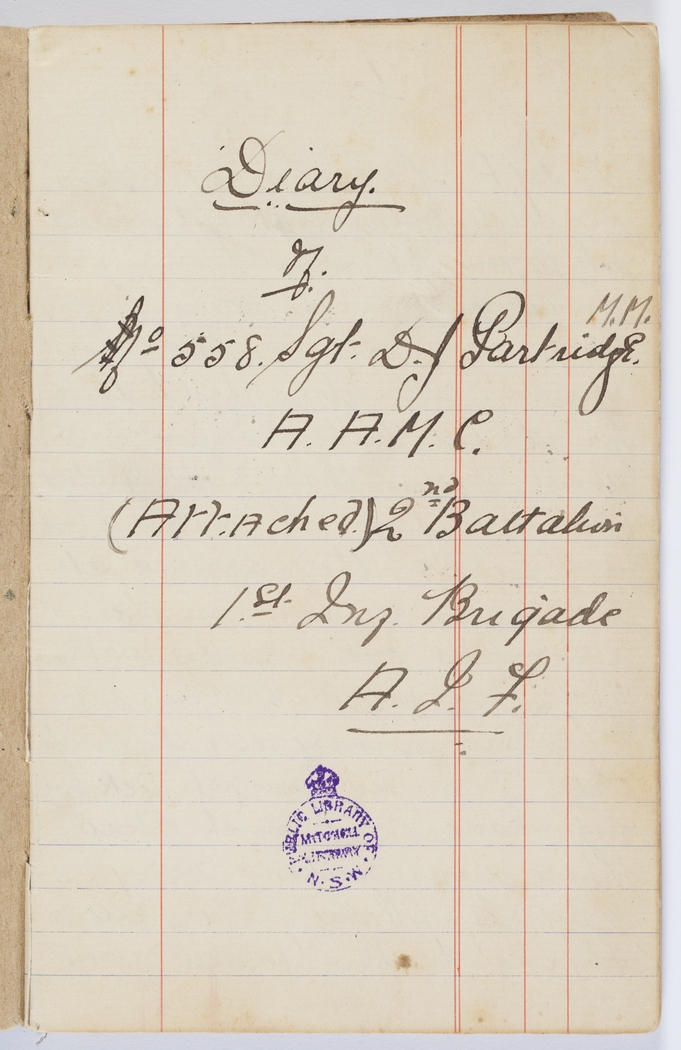 Diary.
of.
M.M.
No 558. Sgt. D. J Partridge.
A. A. M. C.
(Attached) 2nd Battalion
1st Inf. Brigade
A. I. F.
PUBLIC LIBRARY OF
MITCHELL
LIBRARY
N.S.W.